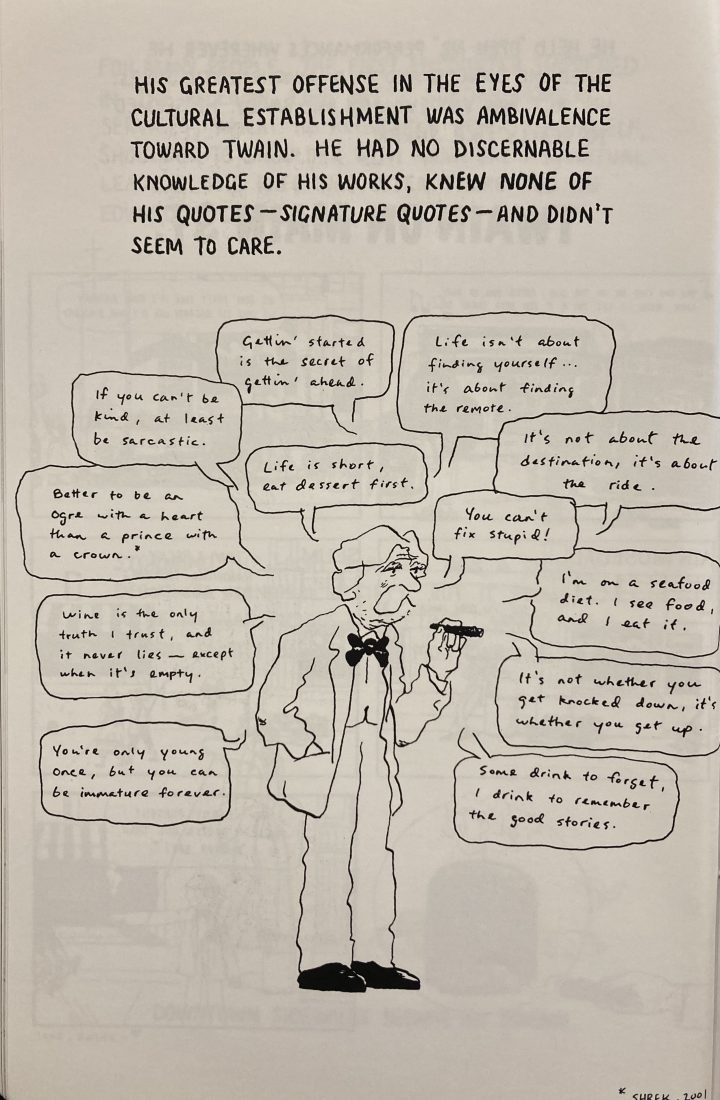 HIS GREATEST OFFENSE IN THE EYES OF THE
CULTURAL ESTABLISHMENT WAS AMBIVALENCE
TOWARD TWAIN. HE HAD NO DISCERNABLE
KNOWLEDGE OF HIS WORKS, KNEW NONE OF
HIS QUOTES—SIGNATURE QUOTES—AND DIDN'T
SEEM TO CARE.
Gettin' started
is the secret of
gettin' ahead.
Life isn't about
finding yourself...
it's about finding
the remote.
If you can't be
kind, at least
be sarcastic.
Life is short,
eat dessert first.
It's not about the
destination, it's about
the ride.
Better to be an
ogre with a heart
than a prince with
a crown.*
You can't
fix stupid!
I'm on a seafood
diet. I see food,
and I eat it.
Wine is the only
truth I trust, and
it never lies — except
when it's empty.
It's not whether you
get knocked down, it's
whether you get up.
You're only young
once, but you can
be immature forever.
Some drink to forget,
I drink to remember
the good stories.
* SHREK, 2001